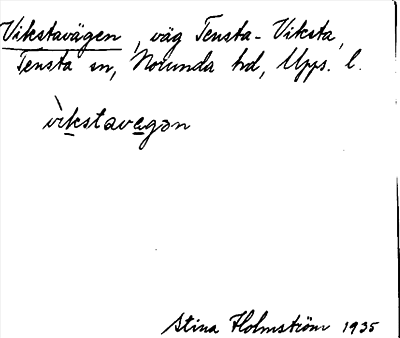 Vikstavägen, väg Tensta - Viksta,
Tensta sn, Norunda hd, Upps. l.
vìkstavegən
Stina Holmström 1935